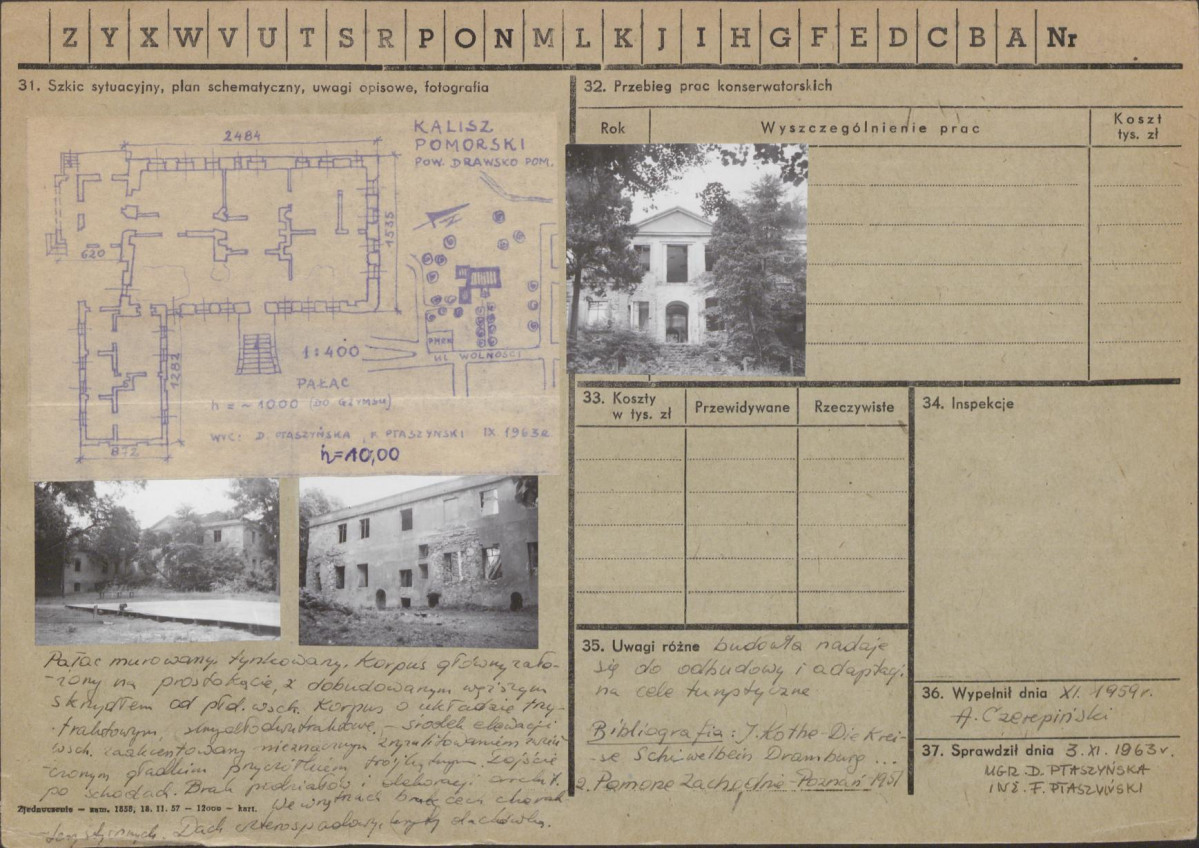 Z Y X W V U T S R P O N M L K J I H G F E D C B A Nr
31. Szkic sytuacyjny, plan schematyczny, uwagi opisowe, fotografia
KALISZ
POMORSKI
POW. DRAWSKO POM.
2484
1535
620
1282
872
1:400
PAŁAC
h = ~1000 (DO GZYMSU)
WYK: D. PTASZYŃSKA, F. PTASZYŃSKI IX 1963 R
h=10,00
UL WOLNOŚCI
Pałac murowany, tynkowany. Korpus główny zało-
-żony na prostokącie, z dobudowanym węższym
skrzydłem od płd. wsch. Korpus o układzie trzy-
traktowym, skrzydło dwutraktowe – środek elewacji
wsch. zaakcentowany nieznacznym zryzalitowaniem zwień-
czonym gładkim przyczółkiem trójkątnym. Zejście
po schodach. Brak podziałów i dekoracji archit.
We wnętrzach brak cech charak-
-terystycznych. Dach czterospadowy, kryty dachówką.
Zjednoczenie — zam. 1858, 18. 11. 57 — 12000 — kart.
32. Przebieg prac konserwatorskich
Rok Wyszczególnienie prac Koszt tys. zł
33. Koszty w tys. zł Przewidywane Rzeczywiste
34. Inspekcje
35. Uwagi różne budowla nadaje
się do odbudowy i adaptacj.
na cele turystyczne
Bibliografia: J. Kothe - Die Krei-
se Schivelbein Dramburg ...
2. Pomorze Zachodnie - Poznań 1951
36. Wypełnił dnia XI. 1959 r.
A. Czerepiński
37. Sprawdził dnia 3. XI. 1963 r.
MGR. D. PTASZYŃSKA
INŻ. F. PTASZYŃSKI